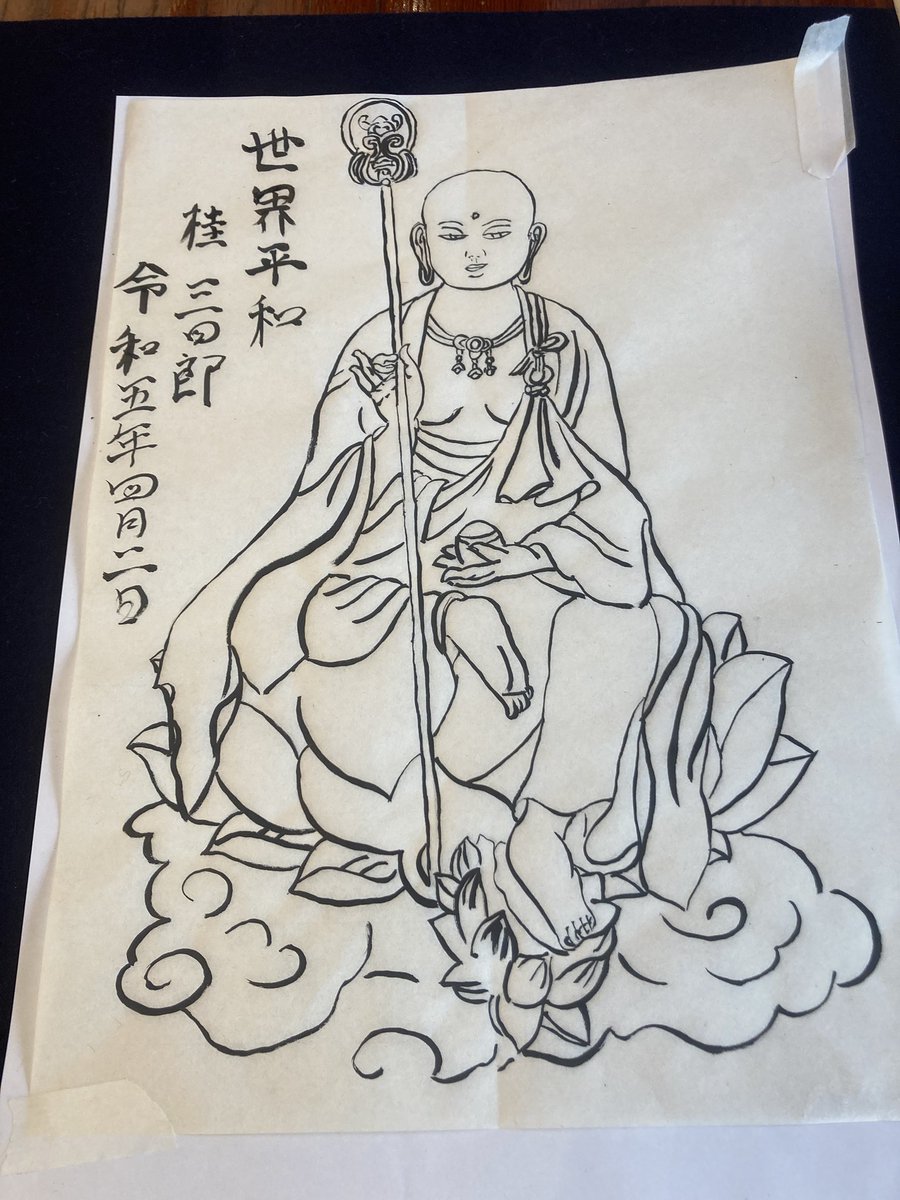 世界平和
桂三四郎
令和五年四月二日